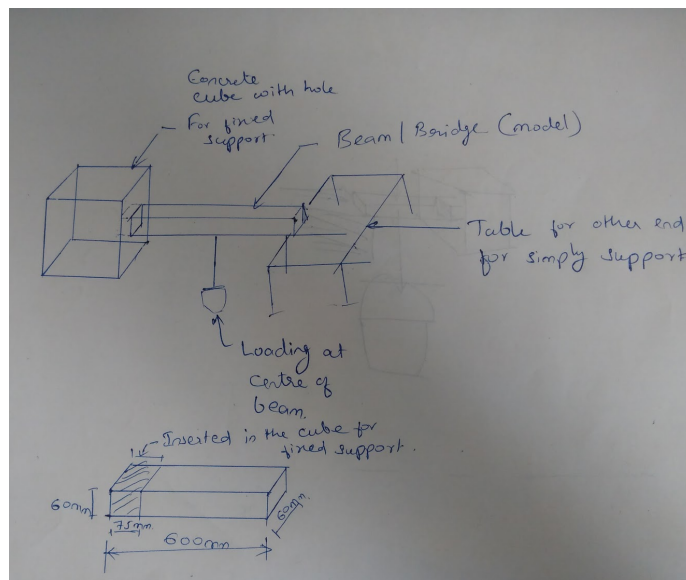 Concrete
cube with hole
For fixed
support
Beam / Bridge (model)
Table for other end
for simply support
Loading at
centre of
beam.
Inserted in the cube for
fixed support.
60mm
75mm
60mm
600mm